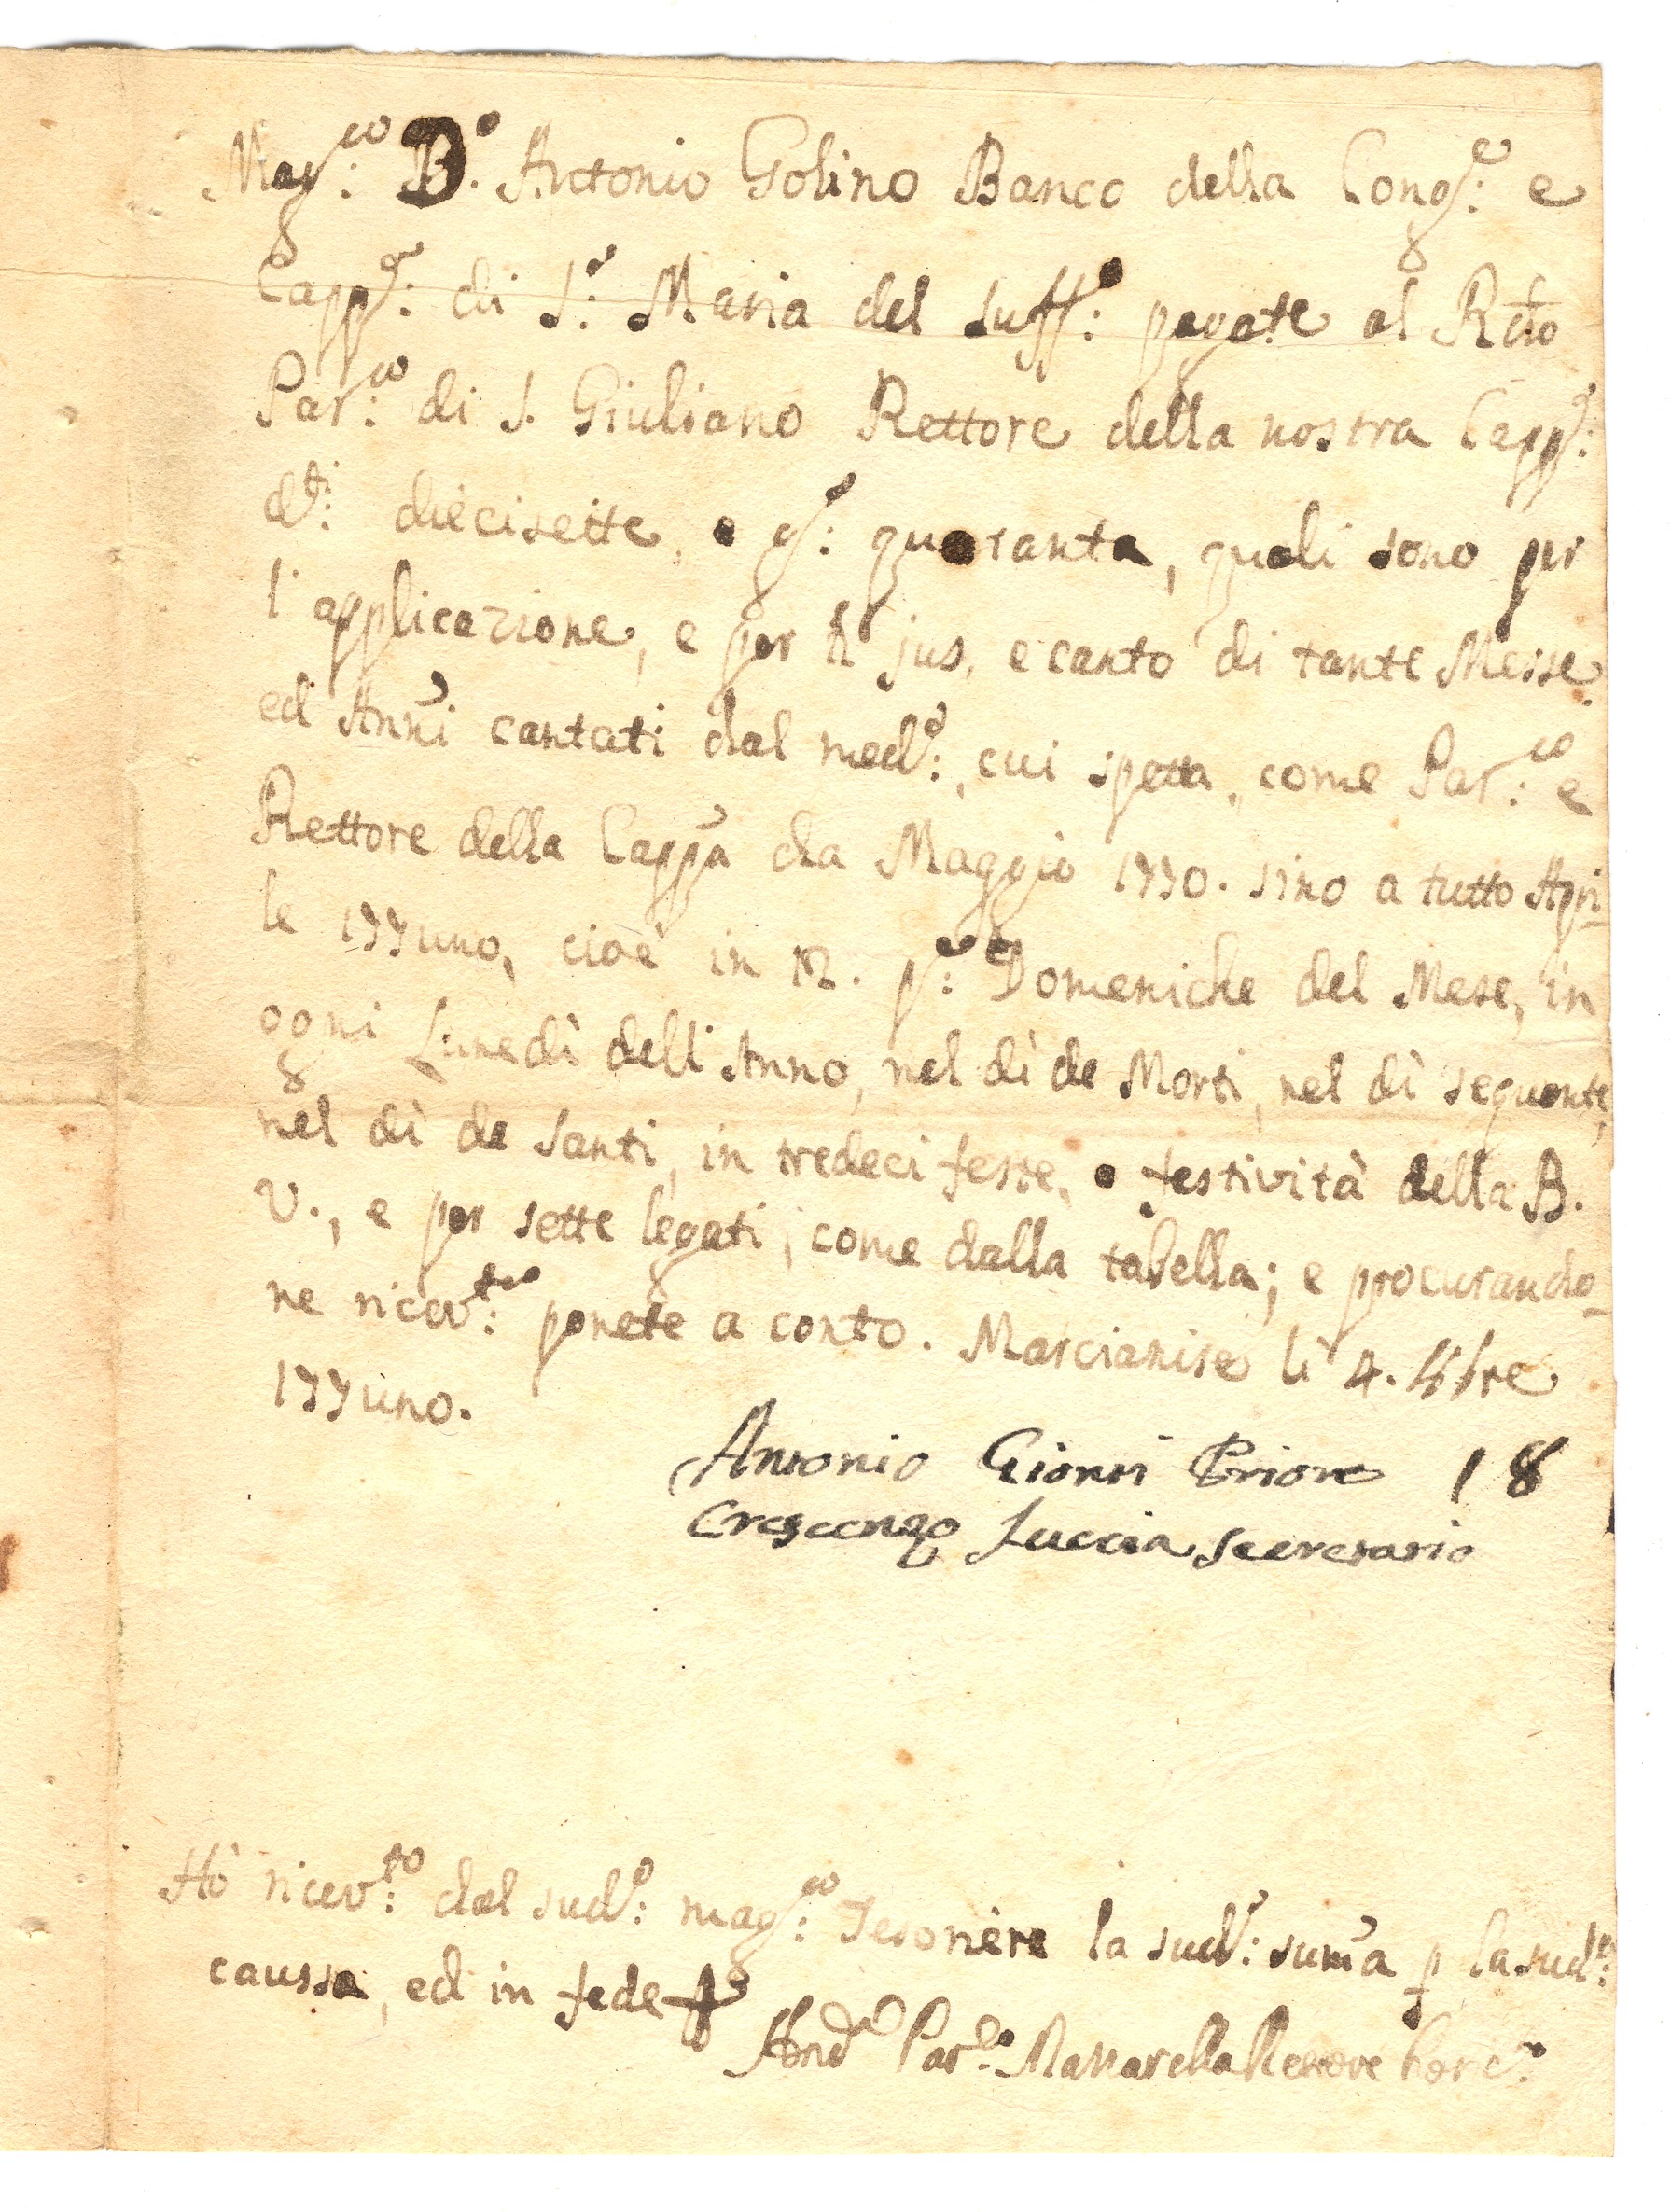 Mag:co D.o Antonio Golino Banco della Cong:e e
Capp:a di S:a Maria del Suff:o pagate al Rdo
Par:co di S. Giuliano Rettore della nostra Capp:a
d:ti diecisette, e g:a quaranta, quali sono pr
l'applicazione, e per jus, e canto di tante Messe
ed Anñi cantati dal med:o, cui spetta, come Par:co e
Rettore della Cappa da Maggio 1770. sino a tutto Apri-
le 177uno, cioè in 12. p:e Domeniche del Mese, in
ogni Lunedì dell'Anno, nel dì de Morti, nel dì seguente,
nel dì de Santi, in tredeci feste, e festività della B.
V., e per sette legati, come dalla tabella; e procurando-
ne ricev:ta ponete a conto. Marcianise lì 4.
177uno.
Antonio Priore 18
Crescenzo Luccia Secretario
Hò ricev:to dal sud:o mag:co Tesoriere la sud:a suma p la sud:a
caussa, ed in fede
And:a Par:co Mazzarella Rettore